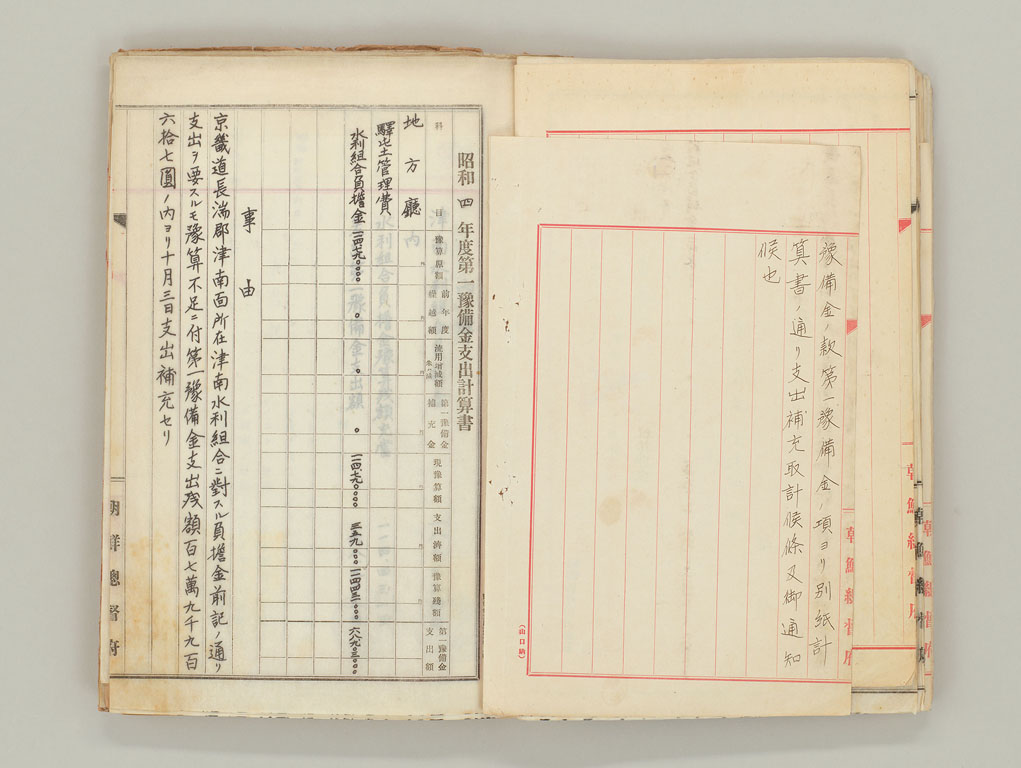 豫備金ノ款第一豫備金ノ項ヨリ別紙計
算書ノ通リ支出補充取計候條又御通知
候也
朝鮮總督府
(山口納)
昭和四年度第一豫備金支出計算書
科目
豫算原額
前年度繰越額
流用増減額
第一豫備金補充金
現豫算額
支出濟額
豫算殘額
第一豫備金支出額
地方廳
驛屯土管理費
水利組合負擔金
事由
京畿道長湍郡津南面所在津南水利組合ニ對スル負擔金前記ノ通リ
支出ヲ要スルモ豫算不足ニ付第一豫備金支出殘額百七萬九千九百
六拾七圓ノ内ヨリ十月三日支出補充セリ
朝鮮總督府